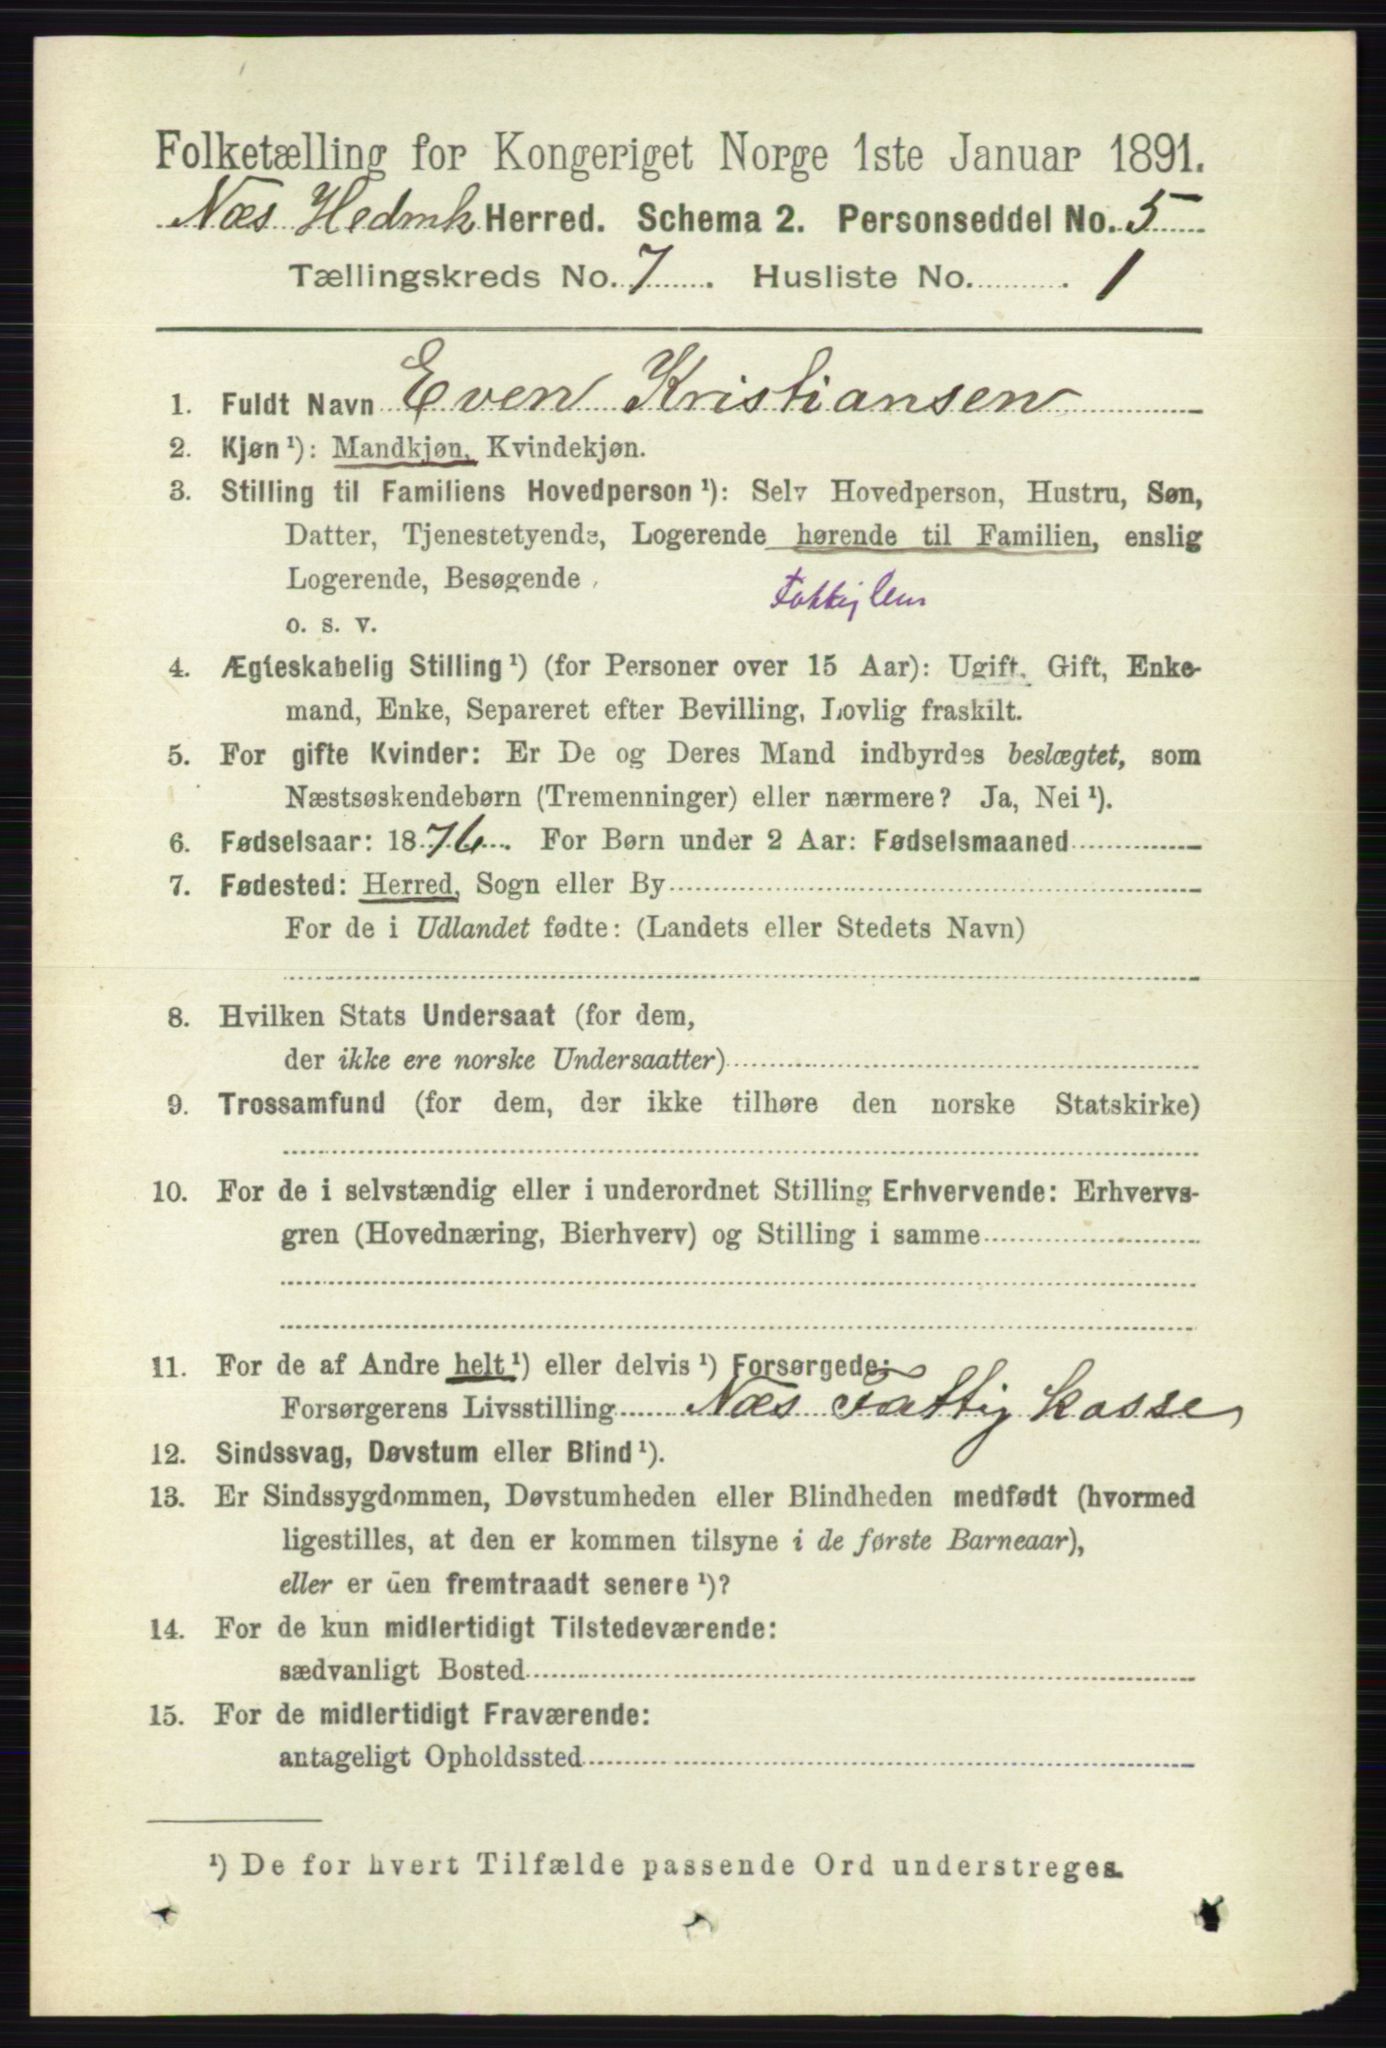 Folketælling for Kongeriget Norge 1ste Januar 1891.
Næs Hedmk Herred. Schema 2. Personseddel No. 5
Tællingskreds No. 7. Husliste No. 1
1. Fuldt Navn Even Kristiansen
2. Kjøn¹): Mandkjøn, Kvindekjøn.
3. Stilling til Familiens Hovedperson¹): Selv Hovedperson, Hustru, Søn,
Datter, Tjenestetyende, Logerende hørende til Familien, enslig
Logerende, Besøgende
Fattiglem
o. s. v.
4. Ægteskabelig Stilling¹) (for Personer over 15 Aar): Ugift, Gift, Enke-
mand, Enke, Separeret efter Bevilling, Lovlig fraskilt.
5. For gifte Kvinder: Er De og Deres Mand indbyrdes beslægtet, som
Næstsøskendebørn (Tremenninger) eller nærmere? Ja, Nei¹).
6. Fødselsaar: 1876. For Børn under 2 Aar: Fødselsmaaned
7. Fødested: Herred, Sogn eller By
For de i Udlandet fødte: (Landets eller Stedets Navn)
8. Hvilken Stats Undersaat (for dem,
der ikke ere norske Undersaatter)
9. Trossamfund (for dem, der ikke tilhøre den norske Statskirke)
10. For de i selvstændig eller i underordnet Stilling Erhvervende: Erhvervs-
gren (Hovednæring, Bierhverv) og Stilling i samme
11. For de af Andre helt¹) eller delvis¹) Forsørgede:
Forsørgerens Livsstilling Næs Fattigkasse
12. Sindssvag, Døvstum eller Blind¹).
13. Er Sindssygdommen, Døvstumheden eller Blindheden medfødt (hvormed
ligestilles, at den er kommen tilsyne i de første Barneaar),
eller er den fremtraadt senere¹)?
14. For de kun midlertidigt Tilstedeværende:
sædvanligt Bosted
15. For de midlertidigt Fraværende:
antageligt Opholdssted
¹) De for hvert Tilfælde passende Ord understreges.